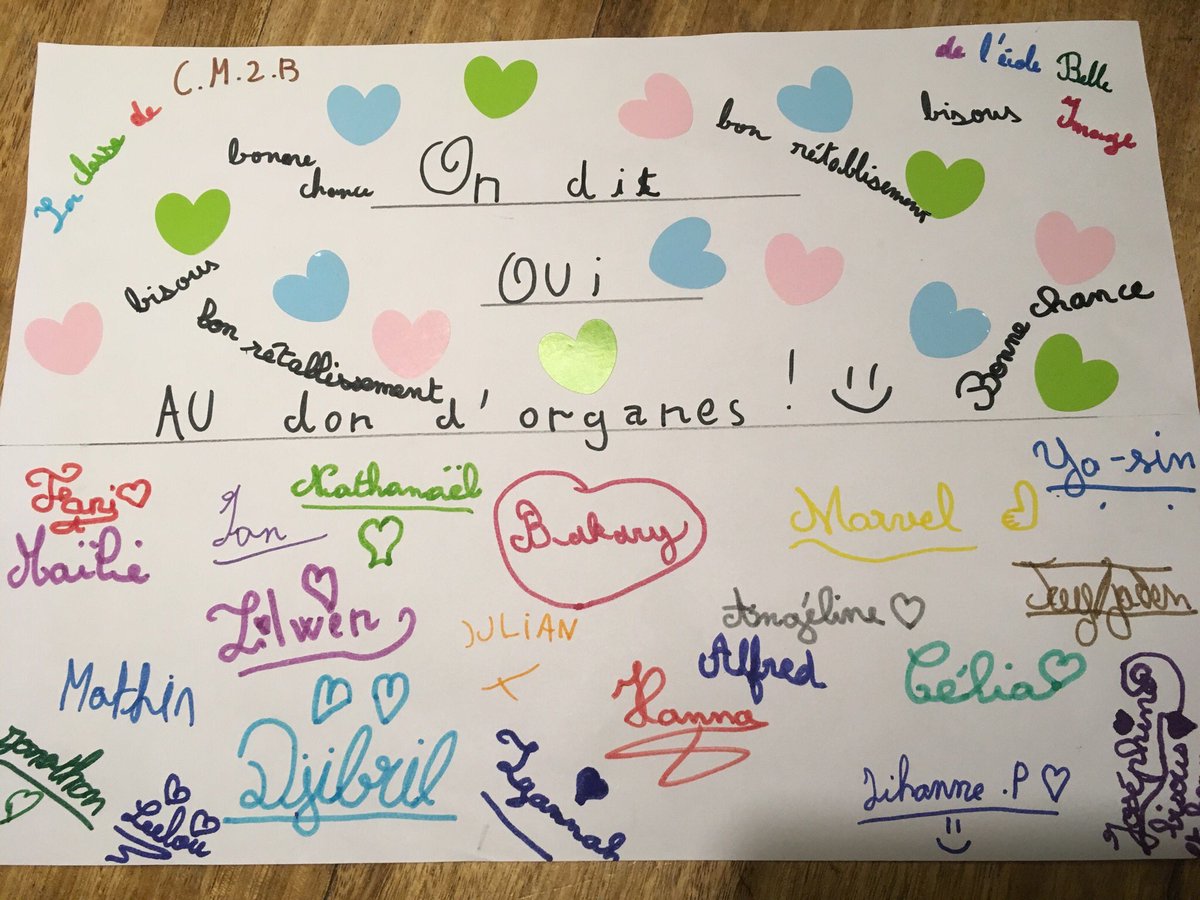 La classe de
C.M.2.B
de l'école Belle
Image
bonne
chance
On dit
bon
rétablisement
bisous
bisous
OUi
bon rétablissement
Bonne chance
AU don d'organes ! :)
Nathanaël
Ya-sin
Ian
Bakary
Marvel
Maïlié
Lilwen
JULiAN
Angéline
Alfred
Célia
Mathin
Hanna
Djibril
Jonathan
Leelou
Lihanne.P
Joséphine
bisous